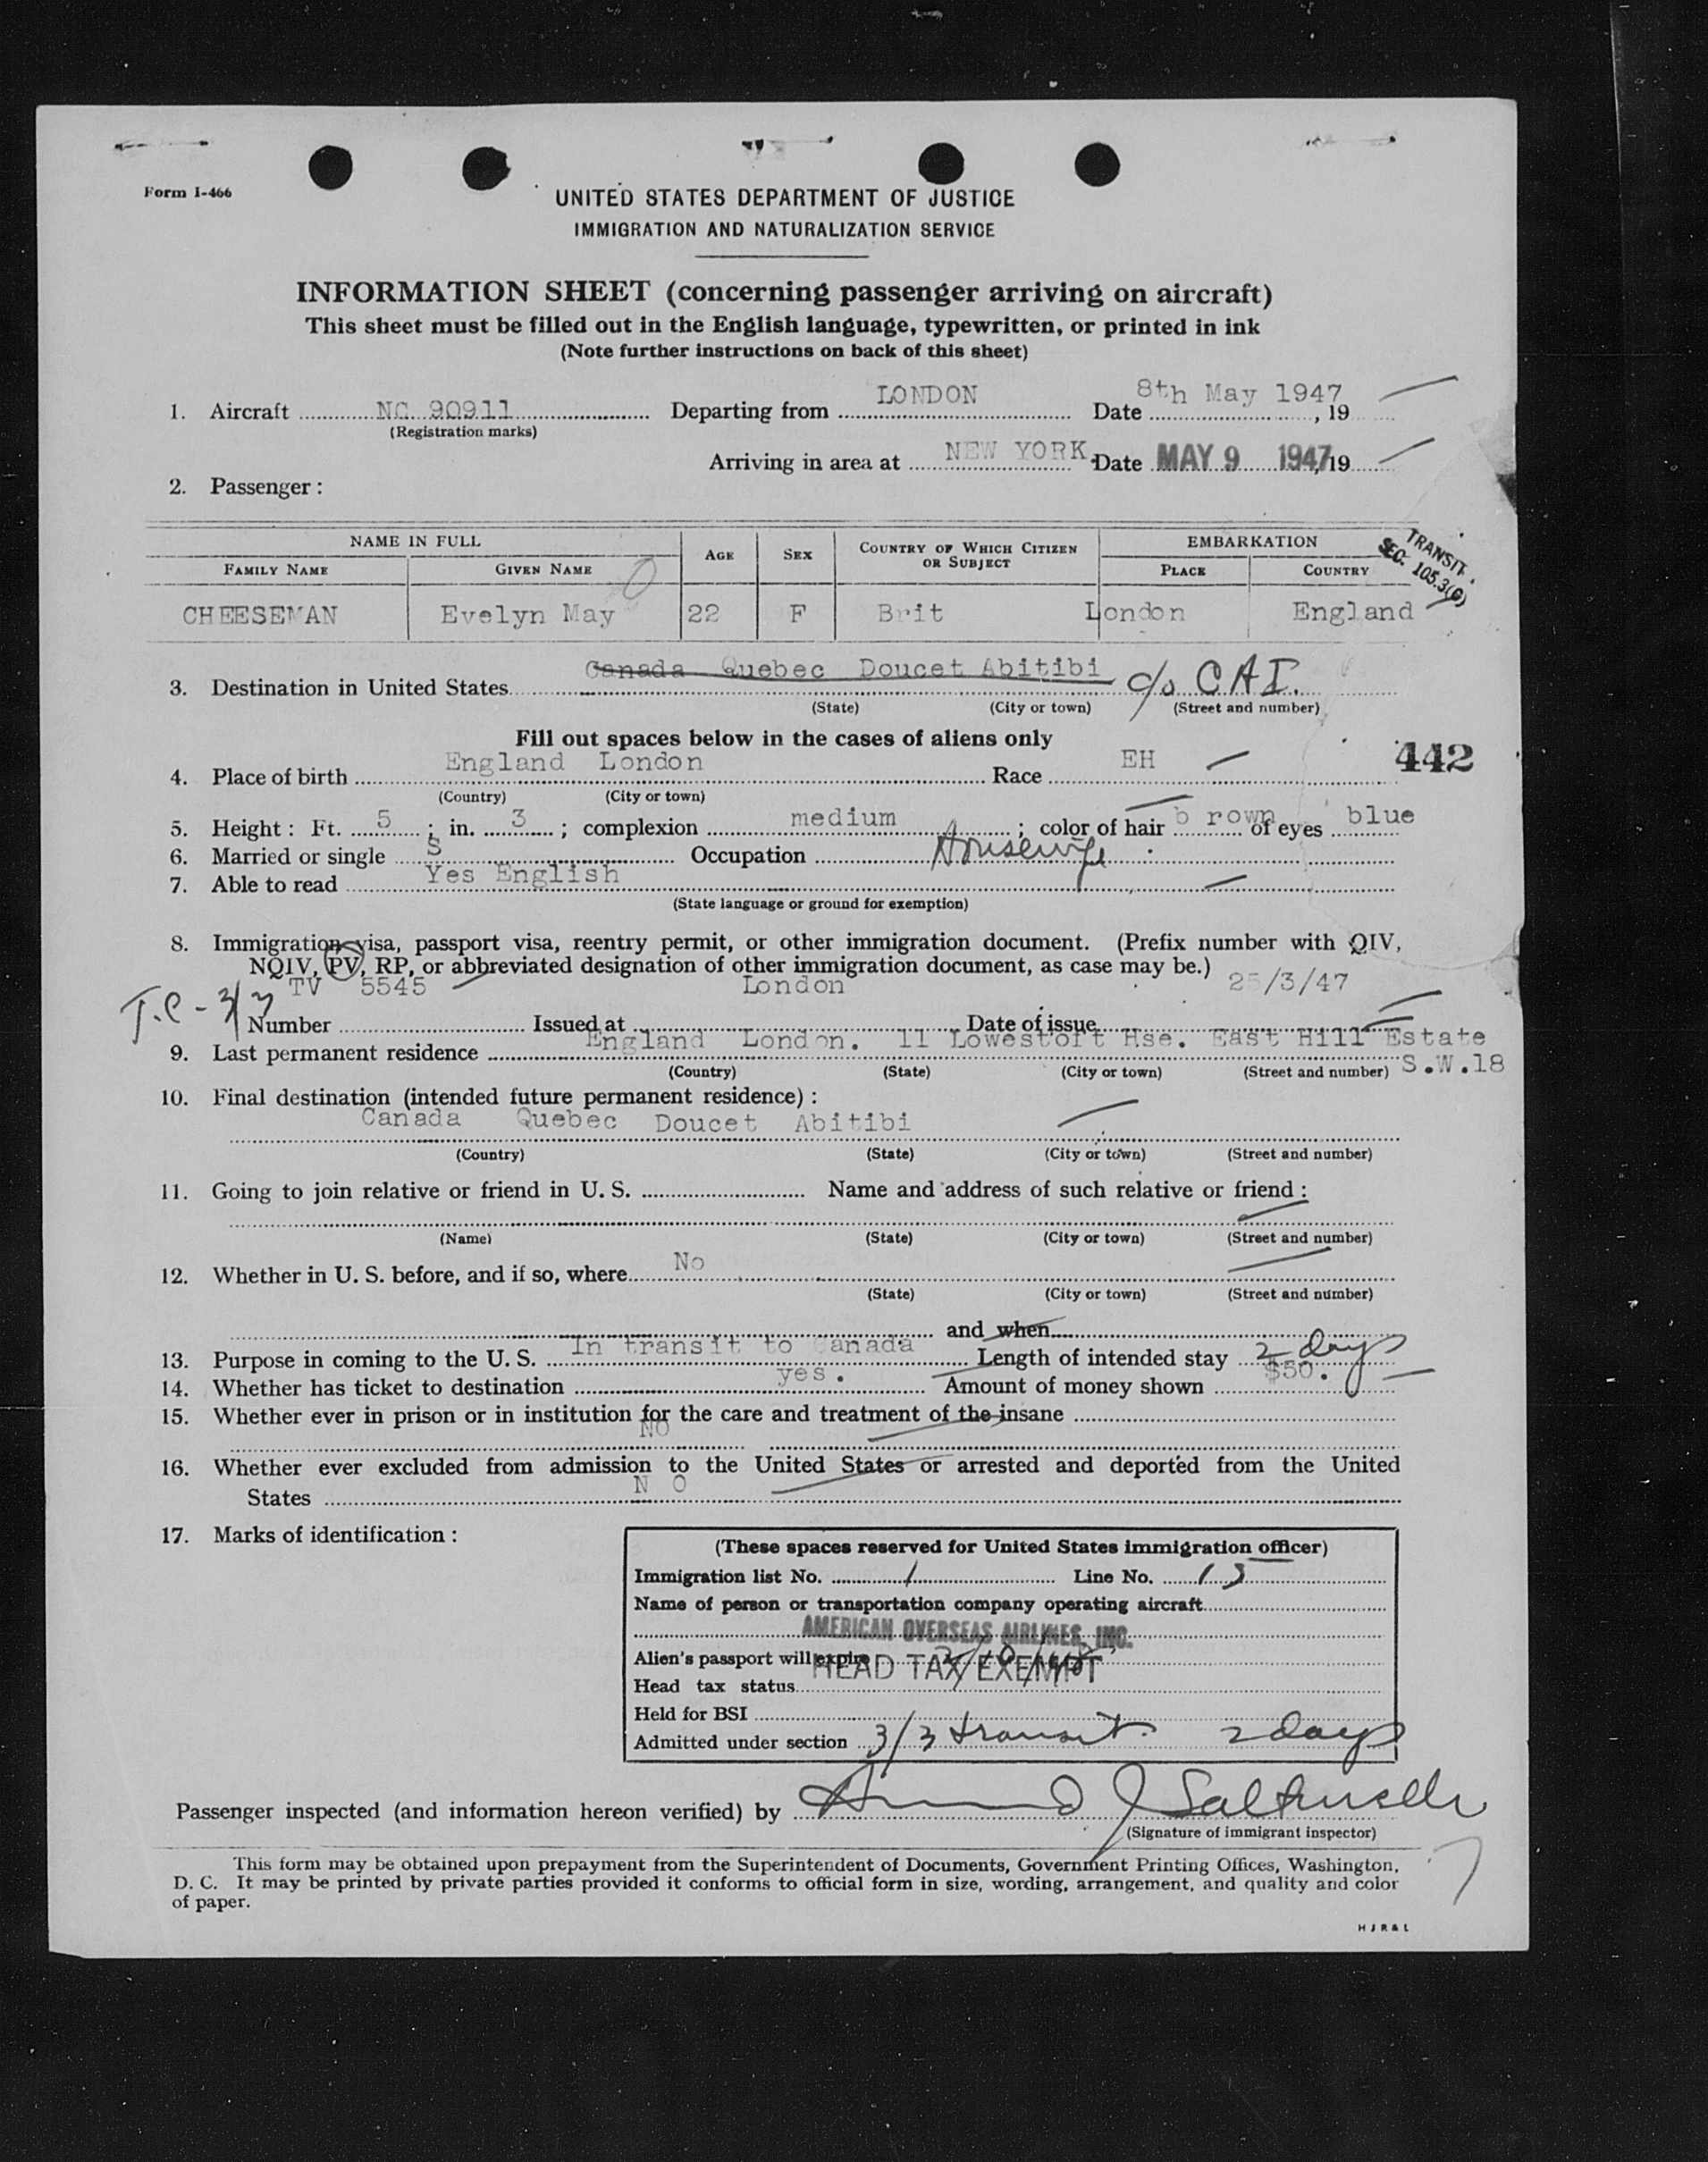 Form I-466
UNITED STATES DEPARTMENT OF JUSTICE
IMMIGRATION AND NATURALIZATION SERVICE
INFORMATION SHEET (concerning passenger arriving on aircraft)
This sheet must be filled out in the English language, typewritten, or printed in ink
(Note further instructions on back of this sheet)
1. Aircraft NC 90911 Departing from LONDON Date 8th May 1947, 19
(Registration marks)
Arriving in area at NEW YORK. Date MAY 9 1947, 19
2. Passenger :
NAME IN FULL AGE SEX COUNTRY OF WHICH CITIZEN OR SUBJECT EMBARKATION
FAMILY NAME GIVEN NAME PLACE COUNTRY
TRANSIT.
SEC. 105.3(6)
CHEESEMAN Evelyn May 22 F Brit London England
3. Destination in United States Canada Quebec Doucet Abitibi c/o C A I.
(State) (City or town) (Street and number)
Fill out spaces below in the cases of aliens only
442
4. Place of birth England London Race EH
(Country) (City or town)
5. Height : Ft. 5 ; in. 3 ; complexion medium ; color of hair b rown of eyes blue
6. Married or single S Occupation Housewife
7. Able to read Yes English
(State language or ground for exemption)
8. Immigration visa, passport visa, reentry permit, or other immigration document. (Prefix number with QIV,
NQIV, PV, RP, or abbreviated designation of other immigration document, as case may be.)
T.C - 3/3 TV 5545 London 25/3/47
Number Issued at Date of issue
9. Last permanent residence England London. 11 Lowestoft Hse. East Hill Estate
(Country) (State) (City or town) (Street and number) S.W.18
10. Final destination (intended future permanent residence) :
Canada Quebec Doucet Abitibi
(Country) (State) (City or town) (Street and number)
11. Going to join relative or friend in U. S. Name and address of such relative or friend :
(Name) (State) (City or town) (Street and number)
12. Whether in U. S. before, and if so, where No
(State) (City or town) (Street and number)
and when
13. Purpose in coming to the U. S. In transit to Canada Length of intended stay 2 days
14. Whether has ticket to destination yes. Amount of money shown $50.
15. Whether ever in prison or in institution for the care and treatment of the insane
NO
16. Whether ever excluded from admission to the United States or arrested and deported from the United
States N O
17. Marks of identification :
(These spaces reserved for United States immigration officer)
Immigration list No. 1 Line No. 13
Name of person or transportation company operating aircraft
AMERICAN OVERSEAS AIRLINES, INC.
Alien's passport will expire
HEAD TAX EXEMPT
Head tax status
Held for BSI
Admitted under section 3/3 transit 2 days
Passenger inspected (and information hereon verified) by
(Signature of immigrant inspector)
This form may be obtained upon prepayment from the Superintendent of Documents, Government Printing Offices, Washington,
D. C. It may be printed by private parties provided it conforms to official form in size, wording, arrangement, and quality and color
of paper.
H J R & L